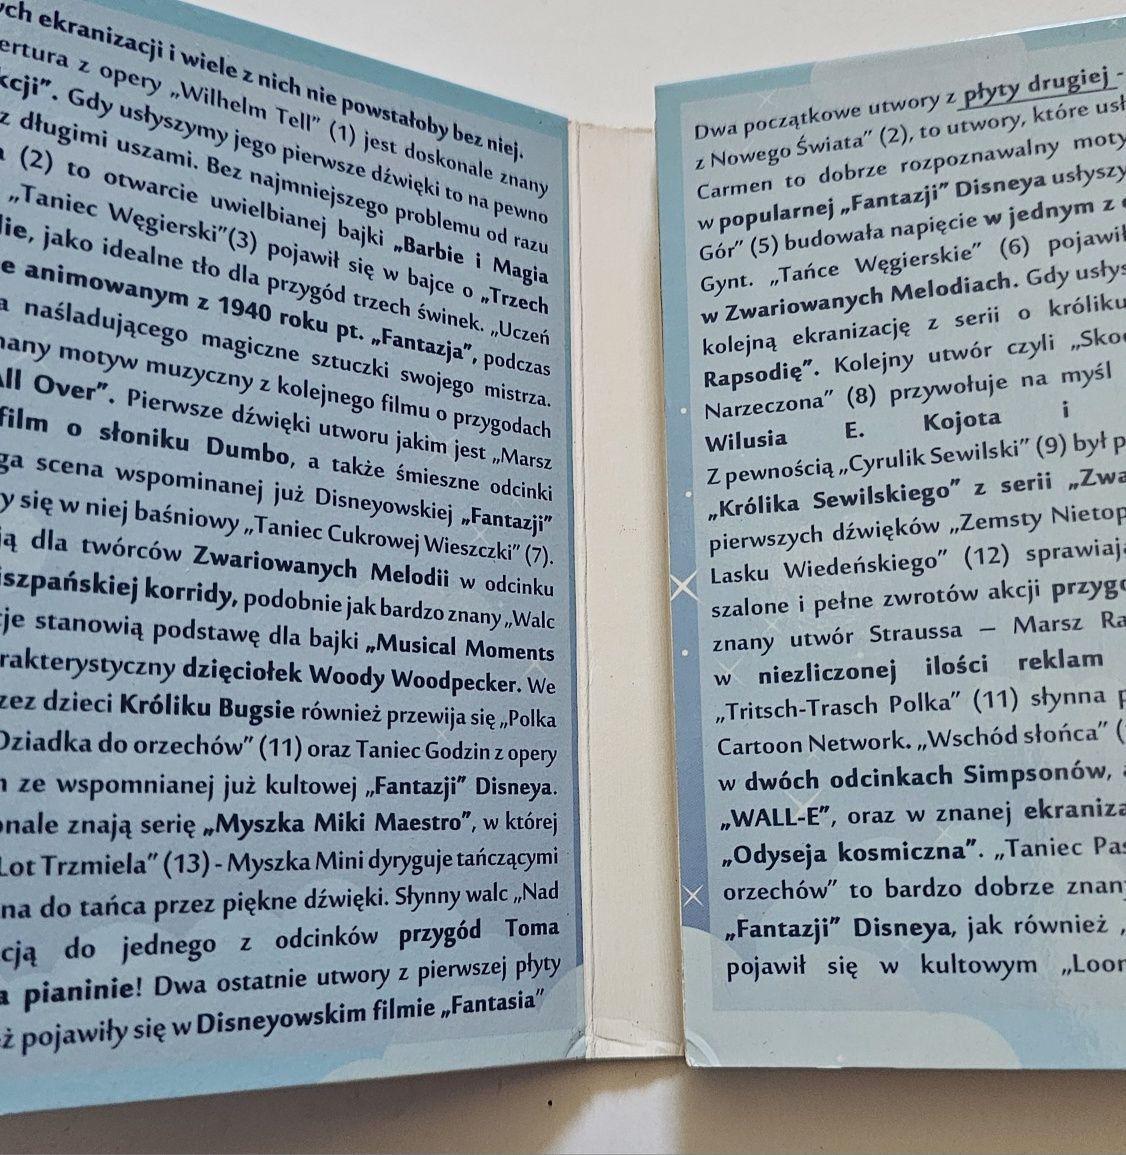 ych ekranizacji i wiele z nich nie powstałoby bez niej.
ertura z opery „Wilhelm Tell” (1) jest doskonale znany
kcji”. Gdy usłyszymy jego pierwsze dźwięki to na pewno
z długimi uszami. Bez najmniejszego problemu od razu
(2) to otwarcie uwielbianej bajki „Barbie i Magia
„Taniec Węgierski”(3) pojawił się w bajce o „Trzech
lie, jako idealne tło dla przygód trzech świnek. „Uczeń
e animowanym z 1940 roku pt. „Fantazja”, podczas
a naśladującego magiczne sztuczki swojego mistrza.
nany motyw muzyczny z kolejnego filmu o przygodach
All Over”. Pierwsze dźwięki utworu jakim jest „Marsz
film o słoniku Dumbo, a także śmieszne odcinki
ga scena wspominanej już Disneyowskiej „Fantazji”
y się w niej baśniowy „Taniec Cukrowej Wieszczki” (7).
ją dla twórców Zwariowanych Melodii w odcinku
iszpańskiej korridy, podobnie jak bardzo znany „Walc
cje stanowią podstawę dla bajki „Musical Moments
rakterystyczny dzięciołek Woody Woodpecker. We
zez dzieci Króliku Bugsie również przewija się „Polka
Dziadka do orzechów” (11) oraz Taniec Godzin z opery
ze wspomnianej już kultowej „Fantazji” Disneya.
onale znają serię „Myszka Miki Maestro”, w której
Lot Trzmiela” (13) - Myszka Mini dyryguje tańczącymi
na do tańca przez piękne dźwięki. Słynny walc „Nad
cją do jednego z odcinków przygód Toma
a pianinie! Dwa ostatnie utwory z pierwszej płyty
ż pojawiły się w Disneyowskim filmie „Fantasia”
Dwa początkowe utwory z płyty drugiej -
z Nowego Świata” (2), to utwory, które usł
Carmen to dobrze rozpoznawalny moty
w popularnej „Fantazji” Disneya usłyszy
Gór” (5) budowała napięcie w jednym z
Gynt. „Tańce Węgierskie” (6) pojawił
w Zwariowanych Melodiach. Gdy usłys
kolejną ekranizację z serii o króliku
Rapsodię”. Kolejny utwór czyli „Sko
Narzeczona” (8) przywołuje na myśl
Wilusia E. Kojota i
Z pewnością „Cyrulik Sewilski” (9) był p
„Królika Sewilskiego” z serii „Zwa
pierwszych dźwięków „Zemsty Nietop
Lasku Wiedeńskiego” (12) sprawiają
szalone i pełne zwrotów akcji przygo
znany utwór Straussa – Marsz Ra
w niezliczonej ilości reklam
„Tritsch-Trasch Polka” (11) słynna p
Cartoon Network. „Wschód słońca” (
w dwóch odcinkach Simpsonów, a
„WALL-E”, oraz w znanej ekraniza
„Odyseja kosmiczna”. „Taniec Pas
orzechów” to bardzo dobrze znan
„Fantazji” Disneya, jak również „
pojawił się w kultowym „Loon